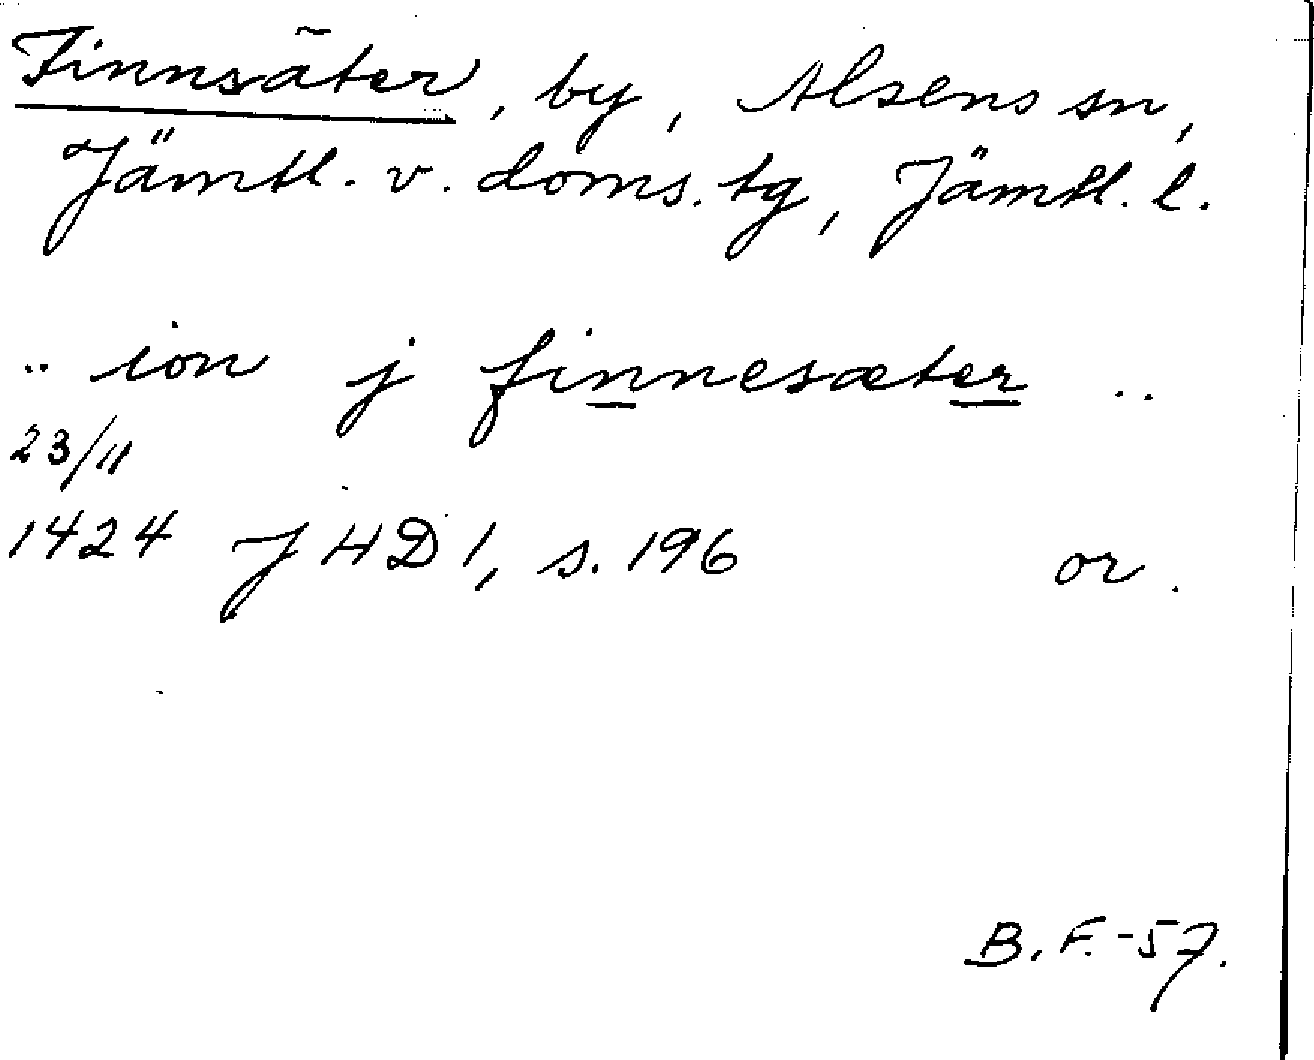 Finnsäter, by, Alsens sn,
Jämtl. v. doms. tg, Jämtl. l.
.. ion j finnesæter ..
23/11
1424 JHD 1, s. 196 or.
B. F. -57.